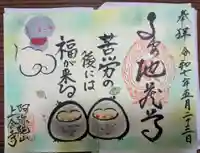 奉拝 令和七年五月二十三日
地蔵尊
苦労の
後には
福が来る
阿弥陀山